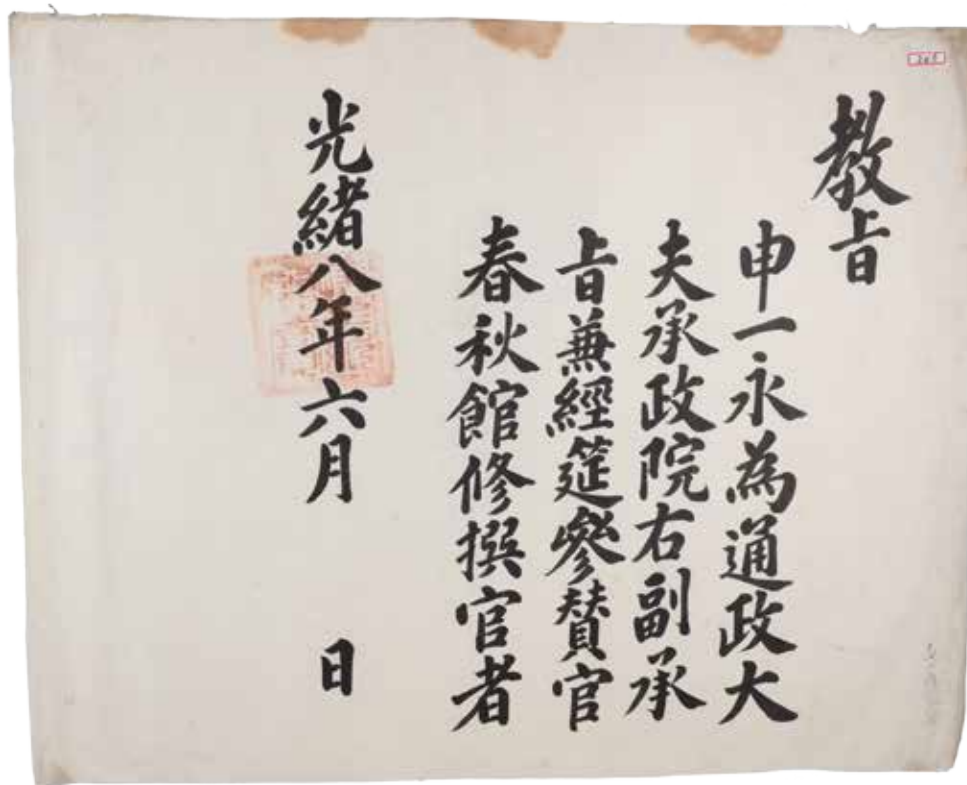 教旨
申一永為通政大
夫承政院右副承
旨兼經筵參贊官
春秋館修撰官者
光緒八年六月　日